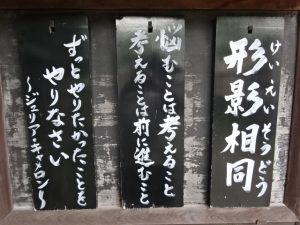 形影相同
けいえいそうどう
悩むことは考えること
考えることは前に進むこと
ずっとやりたかったことを
やりなさい
〜ジュリア・キャメロン〜